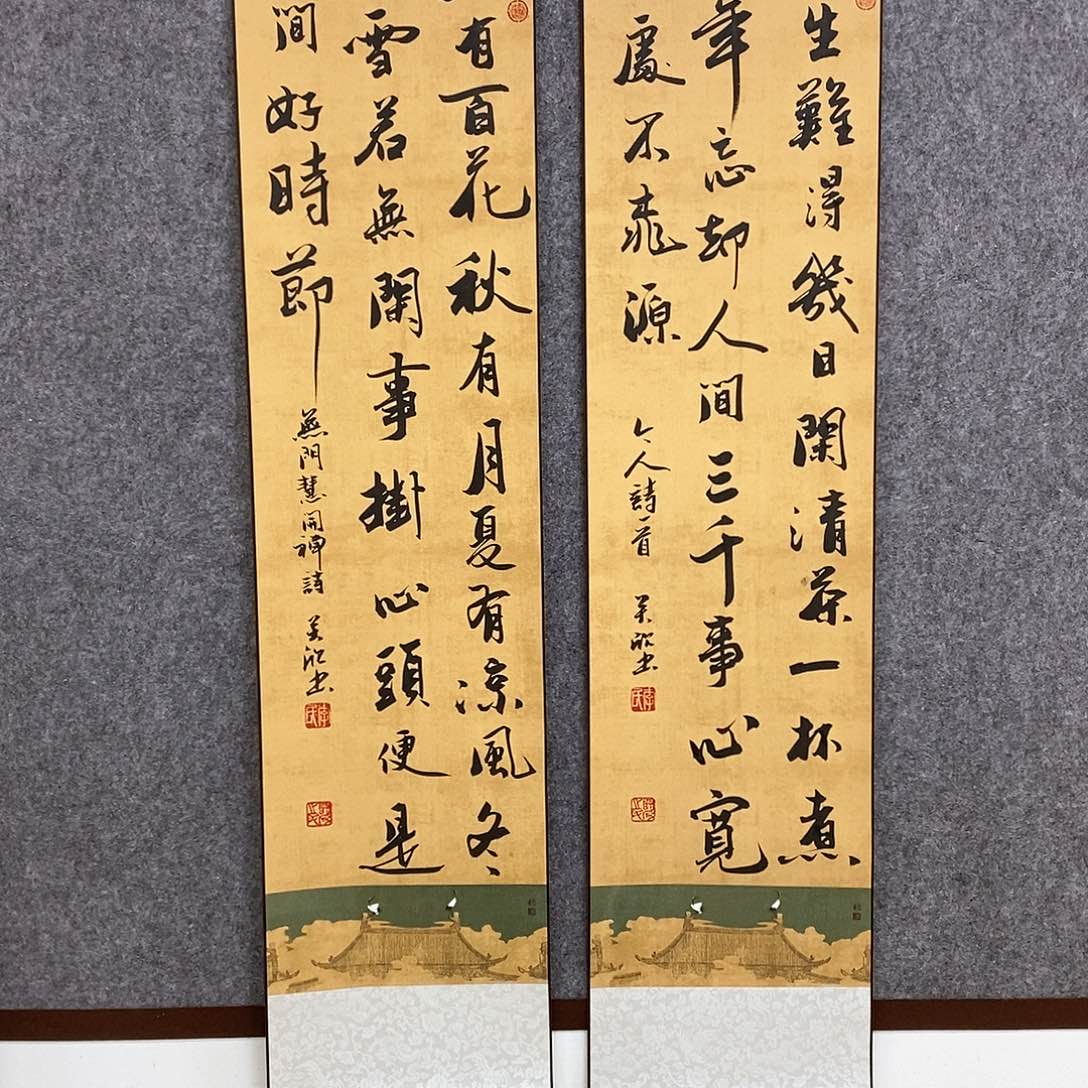 生難得幾日閑清茶一杯煮
年忘却人間三千事心寬
處不桃源
今人詩一首
有百花秋有月夏有涼風冬
雪若無閑事掛心頭便是
間好時節
無門慧開禪詩